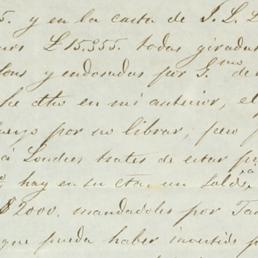 5. y en la carta de J. L. L
£15.355. todas girada
y endosadas por G.mo de
he dho en mi anterior, el
por no librar, pero
á Londres trates de estar
hay en su cta. un Saldo
$2000. mandadoles por
que pueda haber invertido